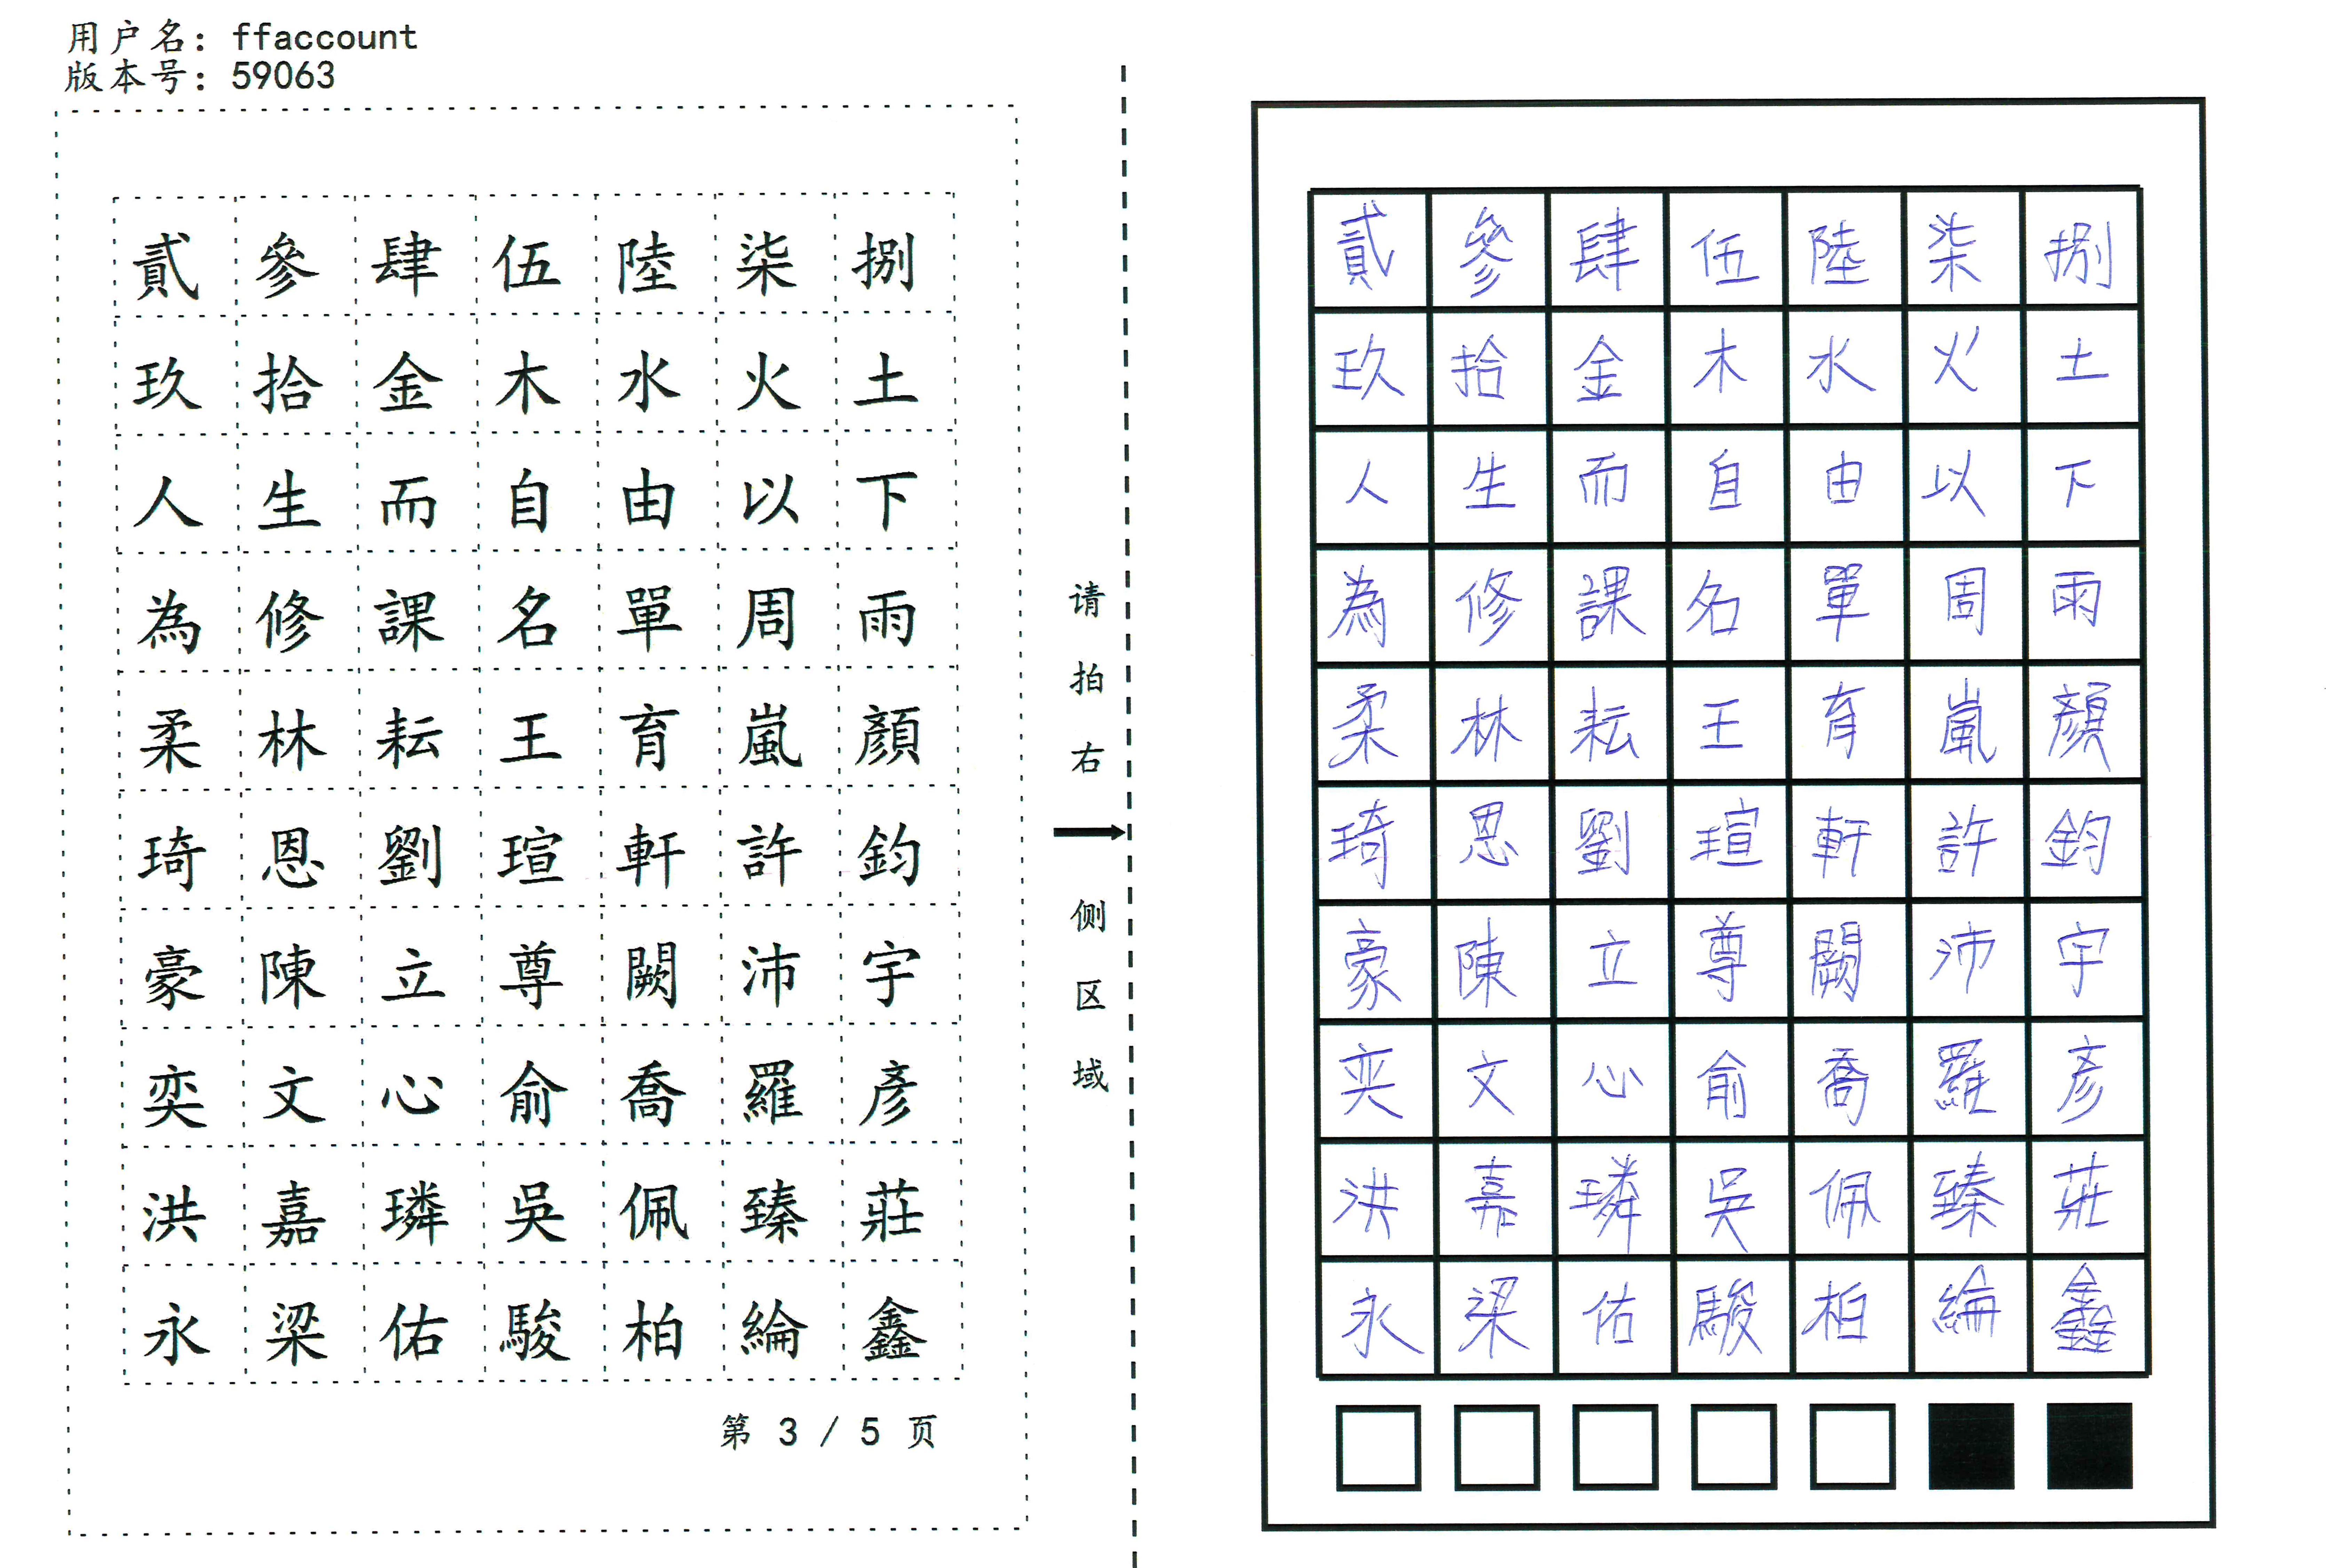 用户名：ffaccount
版本号：59063
貳參肆伍陸柒捌
玖拾金木水火土
人生而自由以下
為修課名單周雨
柔林耘王育嵐顏
琦恩劉瑄軒許鈞
豪陳立尊闕沛宇
奕文心俞喬羅彥
洪嘉璘吳佩臻莊
永梁佑駿柏綸鑫
第 3 / 5 页
请拍右侧区域
貳參肆伍陸柒捌
玖拾金木水火土
人生而自由以下
為修課名單周雨
柔林耘王育嵐顏
琦恩劉瑄軒許鈞
豪陳立尊闕沛宇
奕文心俞喬羅彥
洪嘉璘吳佩臻莊
永梁佑駿柏綸鑫